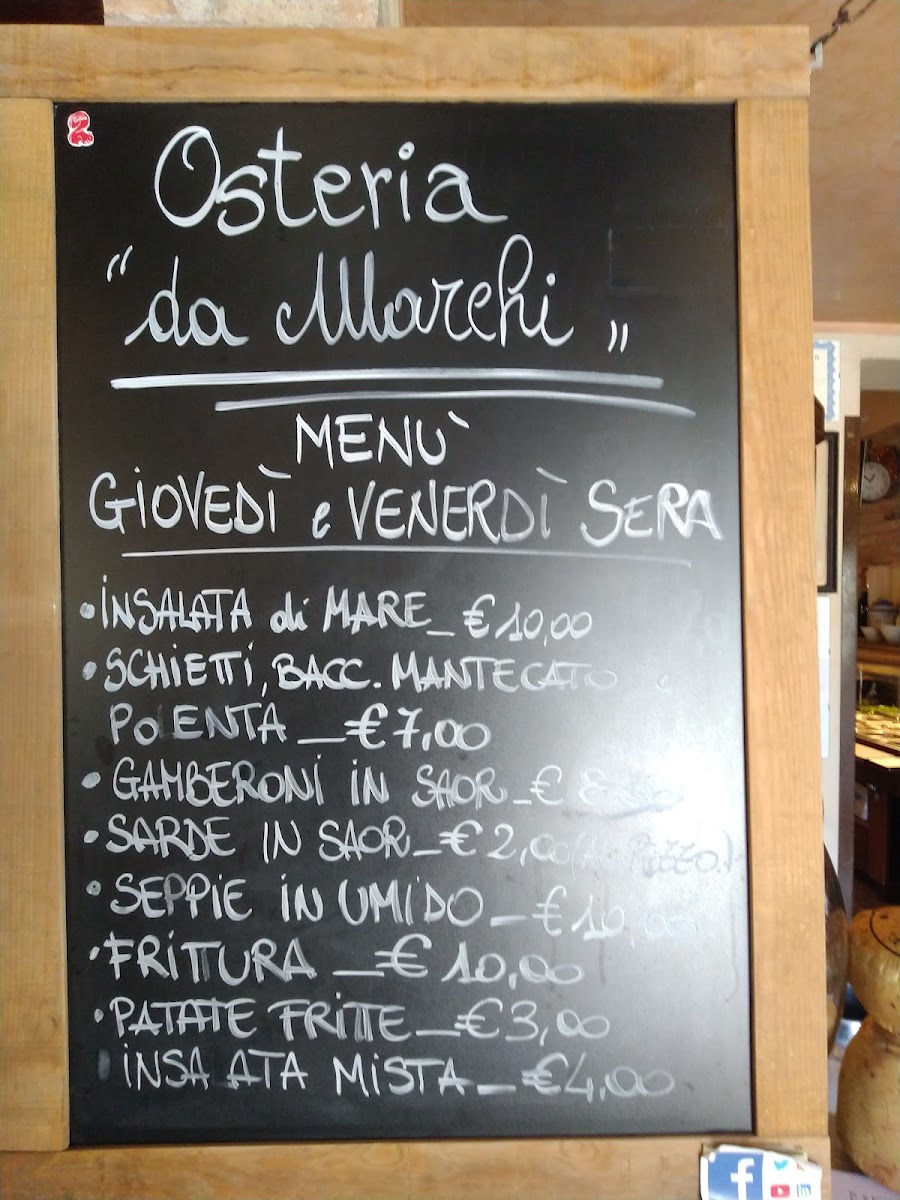 Osteria
"da Marchi"
MENÙ
GIOVEDÌ e VENERDÌ SERA
• INSALATA di MARE - € 10,00
• SCHIETTI, BACC. MANTECATO
POLENTA - € 7,00
• GAMBERONI IN SAOR - €
• SARDE IN SAOR - € 2,00 (AL PEZZO)
• SEPPIE IN UMIDO - € 10,00
• FRITTURA - € 10,00
• PATATE FRITTE - € 3,00
INSA ATA MISTA - € 4,00